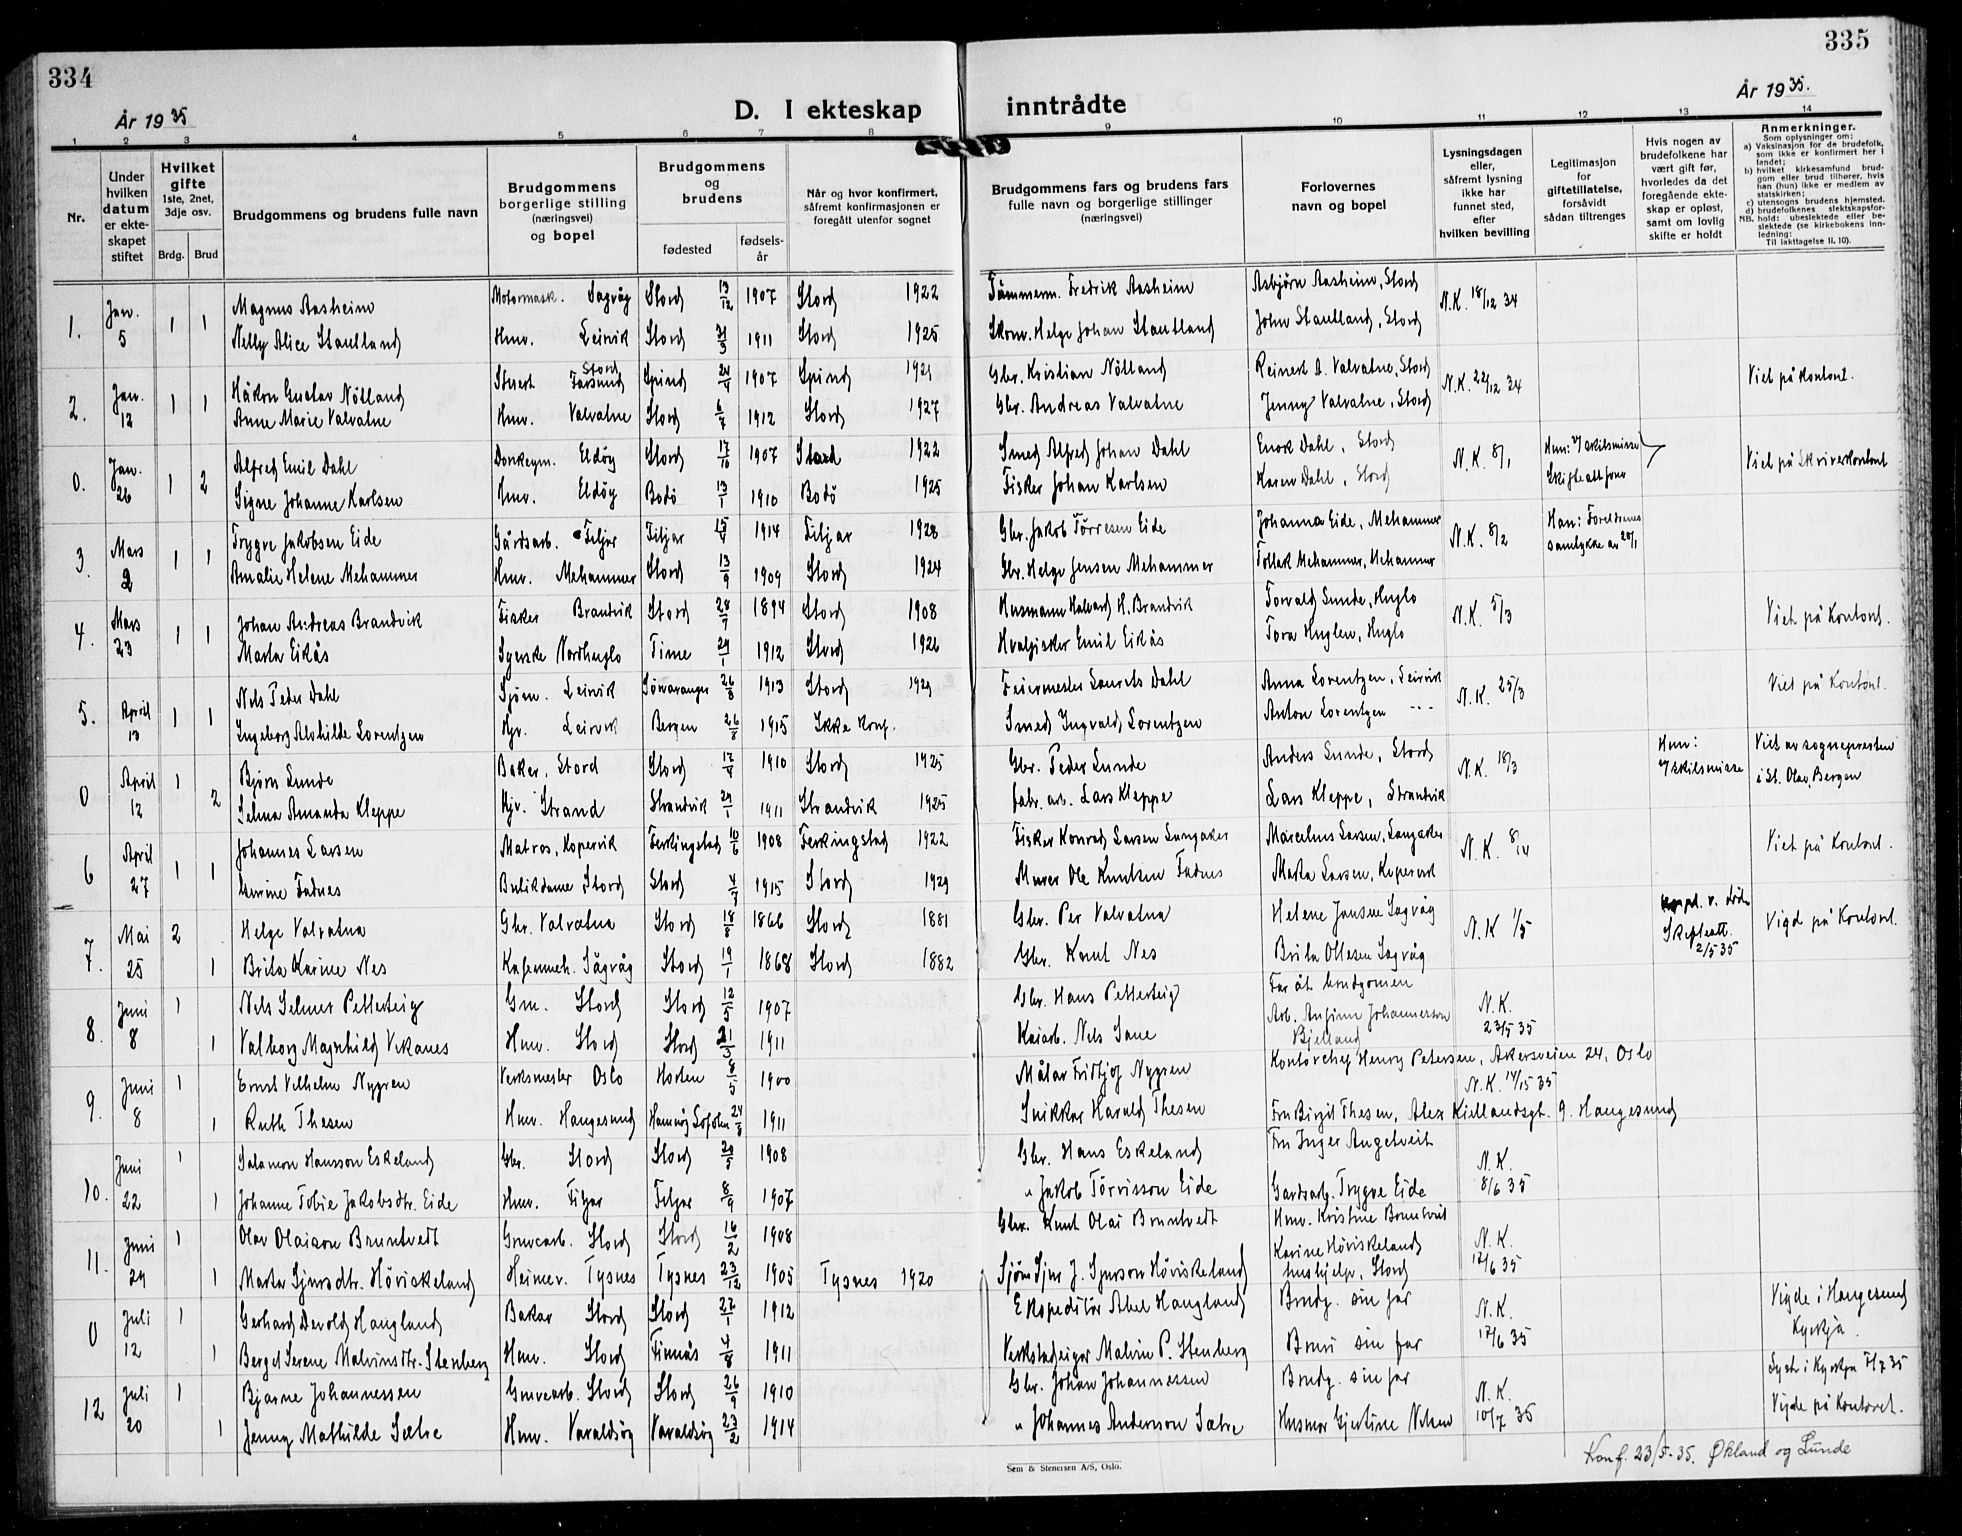 334
335
År 1935
År 1935.
D. I ekteskap inntrådte
1 2 3 4 5 6 7 8 9 10 11 12 13 14
Nr.
Under hvilken datum er ekteskapet stiftet
Hvilket gifte 1ste, 2net, 3dje osv.
Brdg. Brud
Brudgommens og brudens fulle navn
Brudgommens borgerlige stilling (næringsvei) og bopel
Brudgommens og brudens
fødested
fødselsår
Når og hvor konfirmert, såfremt konfirmasjonen er foregått utenfor sognet
Brudgommens fars og brudens fars fulle navn og borgerlige stillinger (næringsvei)
Forlovernes navn og bopel
Lysningsdagen eller, såfremt lysning ikke har funnet sted, efter hvilken bevilling
Legitimasjon for giftetillatelse, forsåvidt sådan tiltrenges
Hvis nogen av brudefolkene har vært gift før, hvorledes da det foregående ekteskap er opløst, samt om lovlig skifte er holdt
Anmerkninger.
Som oplysninger om:
a) Vaksinasjon for de brudefolk, som ikke er konfirmert her i landet;
b) hvilket kirkesamfund brudgom eller brud tilhører, hvis han (hun) ikke er medlem av statskirken;
c) utensogns brudens hjemsted.
d) brudefolkenes slektskapsforhold: ubeslektede eller beslektede (se kirkebokens innledning:
NB.
Til iakttagelse II. 10).
1. Jan. 5 1 1 Magnus Aasheim Motormask. Sagvåg Stord 13/12 1907 Stord 1922 Tømmerm. Fredrik Aasheim Asbjørn Aasheim, Stord N.K. 18/12 34
Nelly Alice Stautland Hmv. Leirvik Stord 1911 Stord 1925 Skom. Helge Johan Stautland John Stautland, Stord
2. Jan. 12 1 1 Håkon Gustav Nötland Stuert Farsund Stord Spind 24/4 1907 Spind 1921 Gbr. Kristian Nötland Reinert A. Valvatne, Stord N.K. 22/12 34 Viet på kontoret.
Anne Marie Valvatne Hmv. Valvatne Stord 6/7 1912 Stord 1927 Gbr. Andreas Valvatne Jenny Valvatne, Stord
0. Jan. 26 1 2 Alfred Emil Dahl Donkeym. Eldøy Stord 17/10 1907 Stord 1922 Smed Alfred Johan Dahl Enok Dahl, Stord N.K. 8/1 Hun: v/ skilsmisse Viet på Skriverkontoret
Signe Johanne Karlsen Hmv. Eldøy Bodö 13/1 1910 Bodö 1925 Fisker Johan Karlsen Karen Dahl, Stord Skifteatt. forev.
3. Mars 2 1 1 Trygve Jakobsen Eide Gårdsarb. Fitjar Fitjar 15/4 1914 Fitjar 1928 Gbr. Jakob Törresen Eide Johanna Eide, Mehammer N.K. 8/2 Han: Foreldrenes
Amalie Helene Mehammer Hmv. Mehammer Stord 13/9 1909 Stord 1924 Gbr. Helge Jensen Mehammer Tollak Mehammer, Mehammer samtykke av 28/1
4. Mars 23 1 1 Johan Andreas Brandvik Fisker Brandvik Stord 28/7 1894 Stord 1908 Husmann Halvard H. Brandvik Torvald Lunde, Huglo N.K. 5/3 Viet på kontoret.
Marta Eikås Syerske Nordhuglo Time 29/1 1912 Stord 1926 Hvalfisker Emil Eikås Tora Huglen, Huglo
5. April 13 1 1 Nels Peder Dahl Sjöm. Leirvik Sörvaranger 26/8 1913 Stord 1929 Feiermester Laurits Dahl Anna Lorentzen, Leirvik N.K. 25/3 Viet på kontoret.
Ingeborg Alvhilde Lorentzen Hjv. Leirvik Bergen 26/8 1915 Ikke konf. Smed Ingvald Lorentzen Anton Lorentzen - - -
0 April 12 1 2 Björn Lunde Baker, Stord Stord 17/4 1910 Stord 1925 Gbr. Peder Lunde Anders Lunde, Stord N.K. 18/3 Hun: Viet av sognepresten
Selma Amanda Kleppe Hjv. Strand Strandvik 29/1 1911 Strandvik 1925 fabr. arb. Lars Kleppe Lars Kleppe, Strandvik v/skilsmisse i St. Olav, Bergen
6 April 27 1 1 Johannes Larsen Matros, Kopervik Ferkingstad 10/6 1908 Ferkingstad 1922 Fisker Konrad Larsen Langaker Marcelius Larsen, Langaker N.K. 8/4 Viet på kontoret.
Gerine Fadnes Butikdame Stord Stord 4/7 1915 Stord 1929 Murer Ole Knutsen Fadnes Marta Larsen, Kopervik
7. Mai 25 2 1 Helge Valvatna Gbr. Valvatna Stord 18/8 1866 Stord 1881 Gbr. Per Valvatna Helene Jensen Sagvåg N.K 1/5 Skifteatt. 2/5 35 Vigd på kontoret.
Brita Karine Nes Kafeinneh. Sågvåg Stord 19/1 1868 Stord 1882 Gbr. Knut Nes Brita Ottesen Sagvåg
8. Juni 8 1 1 Nels Selmer Petterteig Gm. Stord Stord 12/5 1907 Gbr. Hans Petterteig Far åt brudgomen N.K. 23/5 35
Valborg Magnhild Vikanes Hmv. Stord Stord 21/3 1911 Kaiarb. Nels Sane Arb. Johannesson Bjelland
9. Juni 8 1 1 Ernst Vilhelm Nygren Verksmester Oslo Horten 8/5 1900 Målar Fridtjof Nygren Kontorchef Henry Petersen, Akersveien 24, Oslo N.K. 14/5 35
Ruth Thesen Hmv. Haugesund Hamnöy Lofoten 24/8 1911 Snikkar Harald Thesen Fru Birgit Thesen, Alex Kiellandsgt. 9. Haugesund
10. Juni 22 1 1 Salamon Hansson Eskeland Gbr. Stord Stord 1908 Gbr. Hans Eskeland Fru Inger Angeltveit N.K. 8/6 35
Johanne Tobie Jakobsdtr. Eide Hmv. Fitjar Fitjar 8/9 1907 " Jakob Törrisson Eide Gardsarb. Trygve Eide
11. Juni 29 1 1 Olav Olaison Bruntvedt Gruvearb. Stord Stord 16/2 1908 Gbr. Knut Olai Bruntvedt Hmv. Kristine Bruntveit N.K. 12/6 35
Marta Sjursdtr. Höviskeland Heimev. Tysnes Tysnes 23/12 1905 Tysnes 1920 Sjöm. Sjur J. Sjurson Höviskeland Karine Höviskeland hushjelp, Stord
0 Juli 12 1 1 Gerhard Devold Haugland Bakar Stord Stord 27/1 1912 Ekspeditör Abel Haugland Brudg. sin far N.K. 17/6 35 Vigde i Haugesund Kyrkja.
Berget Serene Malvinsdtr. Stenberg Hmv. Stord Finnås 4/8 1911 Verkstadseigar Malvin P. Stenberg Bruri sin far
12 Juli 20 1 1 Bjarne Johannessen Gruvearb. Stord Stord 26/9 1910 Gbr. Johan Johannessen Brudg. sin far N.K. 10/7 35 Lyst i Kyrkja 7/7 35
Jenny Mathilde Sætre Hmv. Varaldsöy Varaldsöy 23/2 1914 " Johannes Andersson Sætre Husmor Gjertine Nilsen Vigde på kontoret.
Sem & Stenersen A/S, Oslo.
Konf. 23/5-35. Økland og Lunde